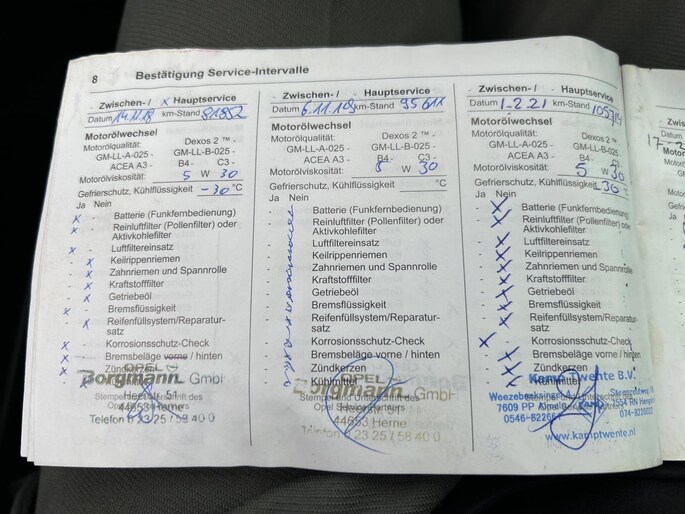 8 Bestätigung Service-Intervalle
Zwischen- / x Hauptservice
Datum 14.11.18 km-Stand 81852
Motorölwechsel
Motorölqualität: Dexos 2 ™ -
GM-LL-A-025 - GM-LL-B-025 -
ACEA A3 - B4 - C3 -
Motorölviskosität: 5 W 30
Gefrierschutz, Kühlflüssigkeit -30 °C
Ja Nein
x - Batterie (Funkfernbedienung)
- x Reinluftfilter (Pollenfilter) oder
Aktivkohlefilter
x - Luftfiltereinsatz
- x Keilrippenriemen
- x Zahnriemen und Spannrolle
- x Kraftstofffilter
- x Getriebeöl
x - Bremsflüssigkeit
- x Reifenfüllsystem/Reparatur-
satz
x - Korrosionsschutz-Check
x - Bremsbeläge vorne / hinten
x - Zündkerzen
OPEL
Borgmann GmbH
44653 Herne
Telefon 0 23 25 / 58 40 0
- Zwischen- / - Hauptservice
Datum 6.11.19 km-Stand 95611
Motorölwechsel
Motorölqualität: Dexos 2 ™ -
GM-LL-A-025 - GM-LL-B-025 -
ACEA A3 - B4 - C3 -
Motorölviskosität: W 30
Gefrierschutz, Kühlflüssigkeit °C
Ja Nein
Batterie (Funkfernbedienung)
Reinluftfilter (Pollenfilter) oder
Aktivkohlefilter
Luftfiltereinsatz
Keilrippenriemen
Zahnriemen und Spannrolle
Kraftstofffilter
Getriebeöl
Bremsflüssigkeit
Reifenfüllsystem/Reparatur-
satz
Korrosionsschutz-Check
Bremsbeläge vorne / hinten
Zündkerzen
Kühlmittel
OPEL
Borgmann GmbH
44653 Herne
Telefon 0 23 25 / 58 40 0
- Zwischen- / - Hauptservice
Datum 1-2 21 km-Stand
Motorölwechsel
Motorölqualität: Dexos 2 ™ -
GM-LL-A-025 - GM-LL-B-025 -
ACEA A3 - B4 - C3 -
Motorölviskosität: 5 W 30
Gefrierschutz, Kühlflüssigkeit 36 °C
Ja Nein
- x Batterie (Funkfernbedienung)
- x Reinluftfilter (Pollenfilter) oder
Aktivkohlefilter
- x Luftfiltereinsatz
- x Keilrippenriemen
- x Zahnriemen und Spannrolle
- x Kraftstofffilter
- x Getriebeöl
- x Bremsflüssigkeit
- x Reifenfüllsystem/Reparatur-
satz
x - Korrosionsschutz-Check
- x Bremsbeläge vorne / hinten
- x Zündkerzen
Kühlmittel
Kamp Twente B.V.
7609 PP
0546-622661
074-
www.kamptwente.nl